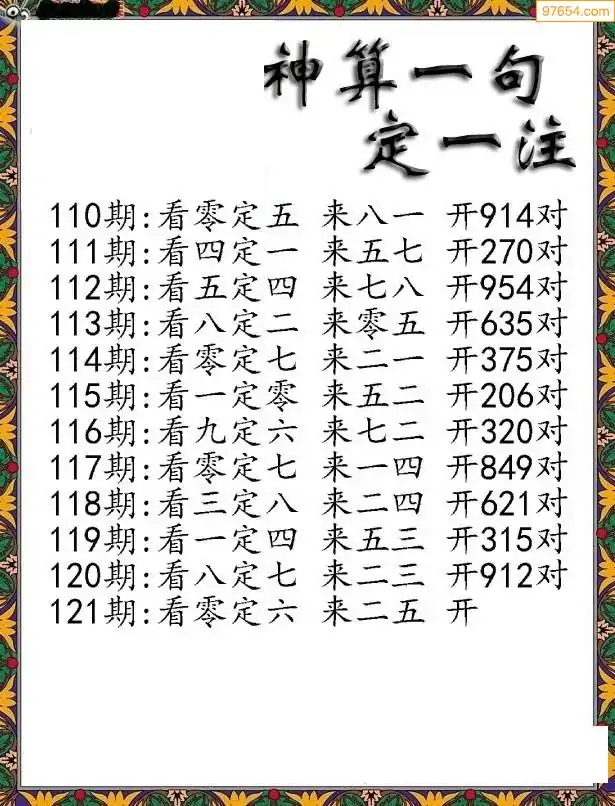 97654.com
神算一句
定一注
110期:看零定五 来八一 开914对
111期:看四定一 来五七 开270对
112期:看五定四 来七八 开954对
113期:看八定二 来零五 开635对
114期:看零定七 来二一 开375对
115期:看一定零 来五二 开206对
116期:看九定六 来七二 开320对
117期:看零定七 来一四 开849对
118期:看三定八 来二四 开621对
119期:看一定四 来五三 开315对
120期:看八定七 来二三 开912对
121期:看零定六 来二五 开